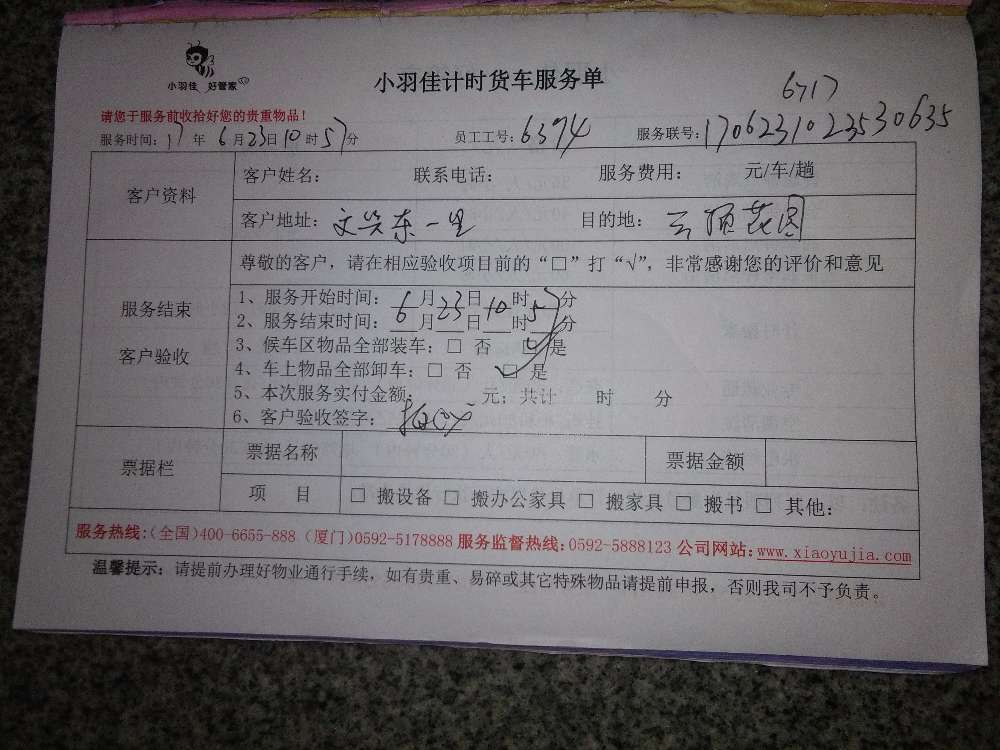 小羽佳 好管家
小羽佳计时货车服务单
6717
请您于服务前收拾好您的贵重物品！
服务时间：17年6月23日10时57分 员工工号：6394 服务联号：1706231023530635
客户资料
客户姓名： 联系电话： 服务费用： 元/车/趟
客户地址：文兴东一里 目的地：云顶花园
服务结束
客户验收
尊敬的客户，请在相应验收项目前的“□”打“√”，非常感谢您的评价和意见
1、服务开始时间：6月23日10时5 分
2、服务结束时间： 月 日 时 分
3、候车区物品全部装车：□ 否 □ 是
4、车上物品全部卸车：□ 否 □ 是
5、本次服务实付金额： 元；共计 时 分
6、客户验收签字：
票据栏
票据名称 票据金额
项 目 □ 搬设备 □ 搬办公家具 □ 搬家具 □ 搬书 □ 其他：
服务热线：（全国）400-6655-888（厦门）0592-5178888 服务监督热线：0592-5888123 公司网站：www.xiaoyujia.com
温馨提示：请提前办理好物业通行手续，如有贵重、易碎或其它特殊物品请提前申报，否则我司不予负责。